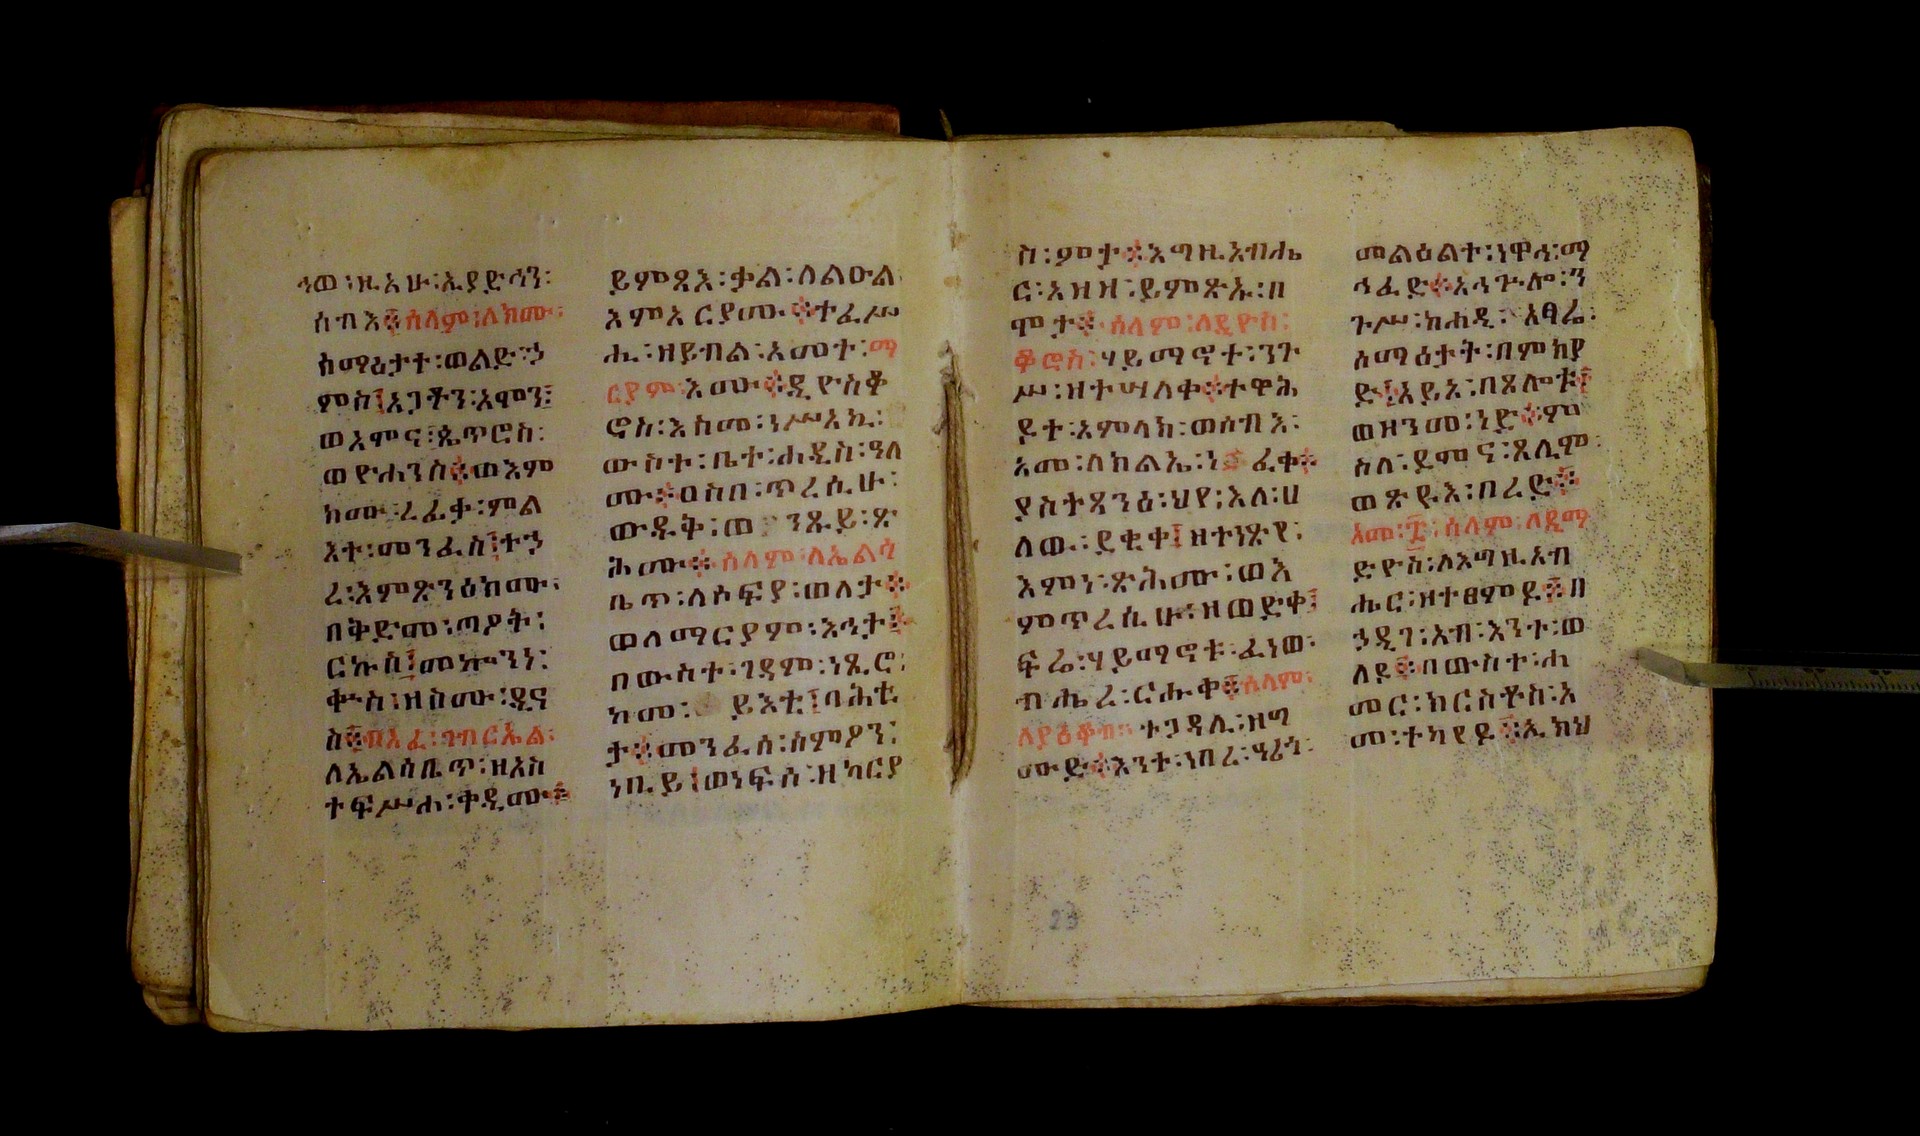 ኀወ፡ዚአሁ፡ኢያድኅን፡
ሰብእ፨ሰላም፡ለክሙ፡
ሰማዕታት፡ወልድ፡ኃ
ምስ፤አጋቶን፡አሞን፤
ወአሞና፡ጴጥሮስ፡
ወዮሐንስ፨ወእም
ከሙ፡ረፈቃ፡ምል
እተ፡መንፈስ፤ተኃ
ረ፡እምጽንዕከሙ፡
በቅድመ፡ጣዖት፡
ርኩስ፤መኰንነ፡
ቍስ፡ዘስሙ፡ዲና
ስ፨ብእፈ፡ገብርኤል፡
ለኤልሳቤጥ፡ዘአስ
ተፍሥሐ፡ቀዲሙ፨
ይምጻእ፡ቃል፡ለልዑል
እምአርያሙ፨ተፈሥ
ሒ፡ዘይብል፡አመተ፡ማ
ርያም፡እሙ፨ዲዮስቆ
ሮስ፡እስመ፡ነሥአኪ፡
ውስተ፡ቤተ፡ሐዲስ፡ዓለ
ሙ፨ዐስበ፡ጥረሲሁ፡
ውዱቅ፡ጽ
ሕሙ፨ሰላም፡ለኤልሳ
ቤጥ፡ለሶፍያ፡ወለታ፨
ወለማርያም፡እኅታ፨
በውስተ፡ገዳም፡ነጺሮ፡
ከመ፡ይእቲ፤ባሕቲ
ታ፨መንፈሰ፡ሰምዖን፡
ነቢይ፤ወነፍሰ፡ዘካርያ
ስ፡ሞታ፨እግዚአብሔ
ር፡አዘዘ፡ይምጽኡ፡በ
ሞታ፨ሰላም፡ለዲዮስ፡
ቆሮስ፡ሃይማኖተ፡ንጉ
ሥ፡ዘተሣለቀ፨ተዋሕ
ዶተ፡አምላክ፡ወሰብእ፡
አመ፡ለከልኤ፡ነፈቀ፨
ያስተጻንዕ፡ህየ፡እለ፡ሀ
ለው፡ደቂቀ፤ዘተነጽየ፡
እምነ፡ጽሕሙ፡ወእ
ምጥረሲሁ፡ዘወድቀ፤
ፍሬ፡ሃይማኖቱ፡ፈነወ፡
ብሔረ፡ርሑቀ፨ሰላም፡
ለያዕቆብ፡ተጋዳሊ፡ዘግ
ሙድ፨እንተ፡ነበረ፡ዓረጎ፡
መልዕልተ፡ነዋኅ፡ማ
ኅፈድ፨አኅጕሎ፡ን
ጉሥ፡ከሐዲ፡አፃሬ፡
ሰማዕታት፡በምክያ
ድ፤አይአ፡በጸሎቱ፤
ወዘንመ፡ነድ፨ም
ስለ፡ደመና፡ጸሊም፡
ወጽዱእ፡በረድ፨
አመ፡፰፡ሰላም፡ለዲማ
ድዮስ፡ለእግዚአብ
ሔር፡ዘተፀምዶ፨በ
ኃዲገ፡አብ፡እንተ፡ወ
ለዶ፨በውስተ፡ሐ
መር፡ክርስቶስ፡አ
መ፡ተካየዶ፨ኢክህ